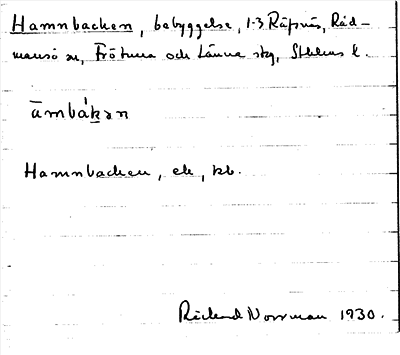 Hamnbacken, bebyggelse, 1-3 Räfsnäs, Råd-
mansö sn, Frötuna och Länna skg, Sthlms l.
Hamnbacken, ek, kb.
Rickard Norrman 1930.